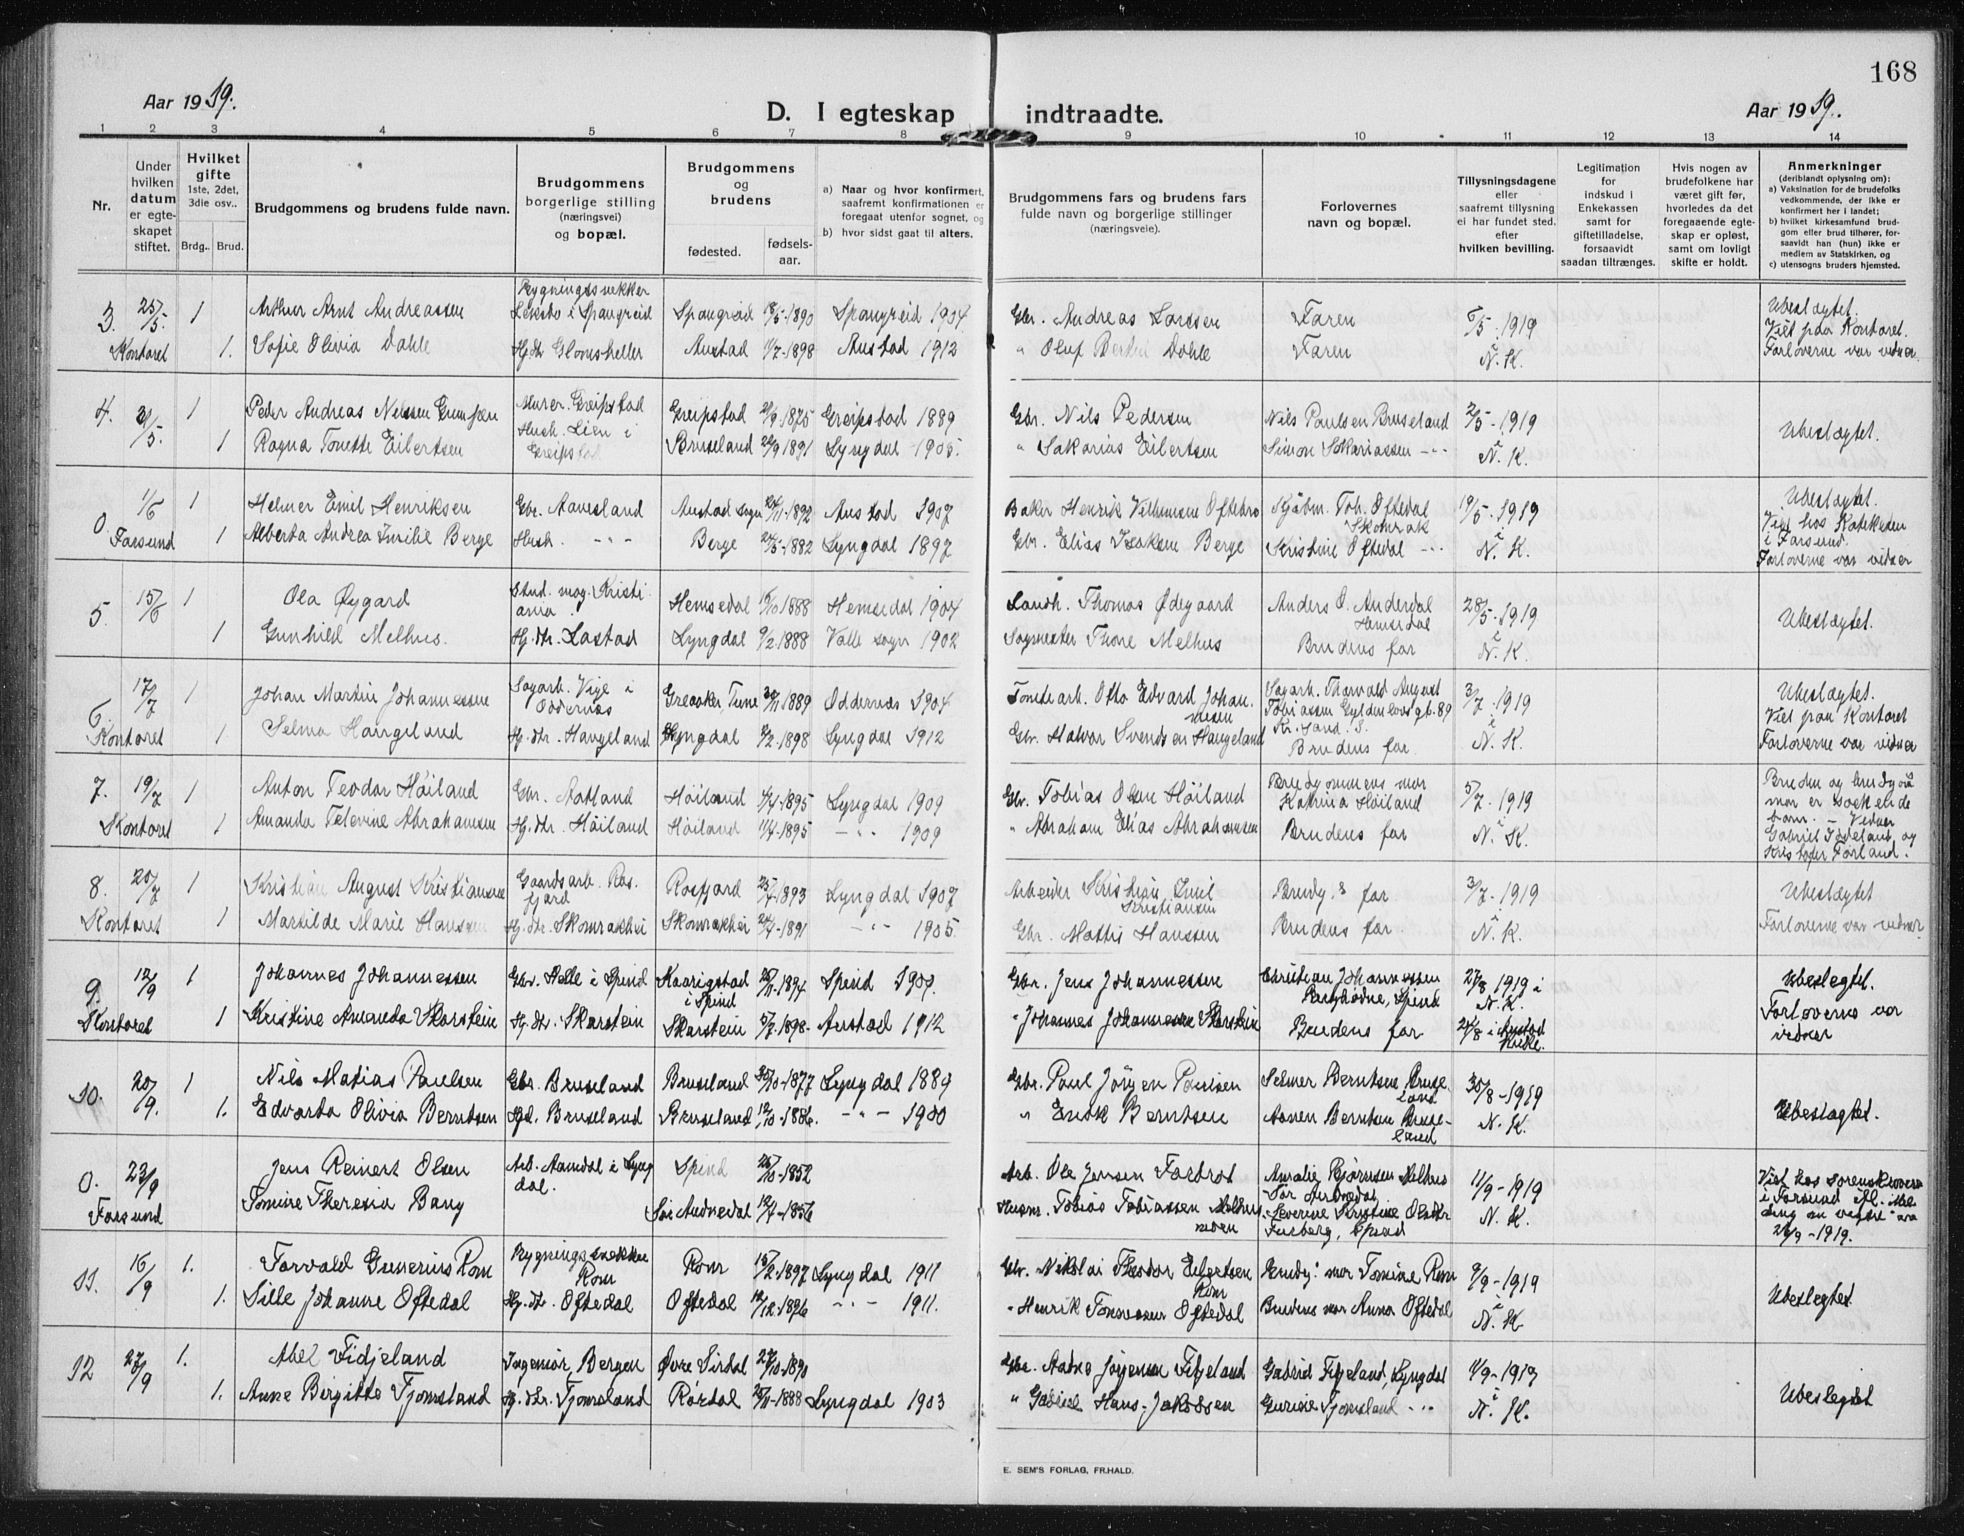 168
Aar 1919.
D. I egteskap indtraadte.
Aar 1919.
1 2 3 4 5 6 7 8 9 10 11 12 13 14
Nr.
Under hvilken datum er egteskapet stiftet.
Hvilket gifte
1ste, 2det, 3die osv..
Brdg.. Brud.
Brudgommens og brudens fulde navn.
Brudgommens borgerlige stilling (næringsvei) og bopæl.
Brudgommens og brudens
fødested.
fødselsaar.
a) Naar og hvor konfirmert, saafremt konfirmationen er foregaat utenfor sognet, og
b) hvor sidst gaat til alters.
Brudgommens fars og brudens fars fulde navn og borgerlige stillinger (næringsveie).
Forlovernes navn og bopæl.
Tillysningsdagene eller saafremt tillysning ei har fundet sted, efter hvilken bevilling.
Legitimation for indskud i Enkekassen samt for giftetilladelse, forsaavidt saadan tiltrænges.
Hvis nogen av brudefolkene har været gift før, hvorledes da det foregaaende egteskap er opløst, samt om lovligt skifte er holdt.
Anmerkninger
(deriblandt oplysning om):
a) Vaksination for de brudefolks vedkommende, der ikke er konfirmert her i landet;
b) hvilket kirkesamfund brudgom eller brud tilhører, forsaavidt han (hun) ikke er medlem av Statskirken, og
c) utensogns bruders hjemsted.
3. 25/5. 1 Arthur Arnt Andreassen Bygningssnekker i Spangreid Spangreid 1890 Spangreid 1904 Gbr. Andreas Larssen Faren 6/5-1919 Ubeslægtet.
Kontoret 1. Sofie Olivia Dahle Hj. dtr. Glomsheller Austad 1/7-1898 Austad 1912 " Oluf Dahle Faren i N. K. Viet paa Kontoret. Forloverne var vidner
4. 31/5. 1 Peder Andreas Nilssen Murer. Greipstad Greipstad 1875 Greipstad 1889 Gbr. Nils Pedersen Nils Paulsen Bruseland 2/5-1919 Ubeslægtet.
1 Ragna Tonette Eilertsen Hush. Lien i Greipstad Bruseland 1891 Lyngdal 1905. " Sakarias Eilertsen Simon Sakariassen -"- i N. K.
0. 1/6 1 Helmer Emil Henriksen Gbr. Aanesland Austad sogn 1892 Austad 1907 Baker Henrik Oftebro Kjøbm. Tob. Oftedal Skomrak 19/5-1919 Ubeslægtet.
Farsund 1 Alberta Andrea Emilie Berge Hush. -"- Berge 1882 Lyngdal 1897 Gbr. Elias Isaksen Berge Kristine Oftedal -"- i N. K. Viet hos i Farsund. Forloverne var vidner
5. 15/6 1 Ola Øygard Stud. mag. Kristiania. Hemsedal 1888 Hemsedal 1904 Landh. Thomas Ødegaard Anders O. Anderdal Hemsedal 28/5-1919 Ubeslægtet.
1 Gunhild Melhus. Hj. dtr. Lastad Lyngdal 9/2-1888 Valle sogn 1902 Sogneprester Melhus Brudens far i N. K.
6. 17/7 1 Johan Martin Johannessen Sagarb. Vige i Oddernes Greaaker Tune 1889 Oddernes 1904 Tomtearb. Otto Edvard Johannessen Sagarb. Thorvald August Tobiassen Gyldenløvesgt. 89 Kr. sand. S. 3/7-1919 Ubeslægtet.
Kontoret 1. Selma Haugeland Hj. dtr. Haugeland Lyngdal 1898 Lyngdal 1912 Gbr. Halvor Svendsen Haugeland Brudens far. i N. K. Viet paa Kontoret Forloverne var vidner
7. 19/7 1 Anton Teodor Høiland Gbr. Høiland 1895 Lyngdal 1909 Gbr. Tobias Olsen Høiland Brudgommens mor Katrina Høiland 5/7-1919
Kontoret 1 Amanda Televine Abrahamsen Hj. dtr. Høiland Høiland 1895 -"- 1909 " Abraham Elias Abrahamsen Brudens far i N. K. Bruden og brudgoms mor er søskendebarn. - Vidner Gabriel og Kristofer Førland.
8. 20/7 1 Kristian August Kristiansen Gaardsarb. Rosfjord Rosfjord 1893 Lyngdal 1907 Arbeider Kristian Emil Kristiansen Brudg.s far 3/7-1919 Ubeslægtet
Kontoret 1 Martilde Marie Hanssen Hj. dtr. Skomrakhei Skomrakhei 1891 -"- 1905. Gbr. Mattis Hanssen Brudens far. i N. K. Forloverne var vidner
9. 12/9 1 Johannes Johannessen Gbr. Helle i Spind Kaarigstad i Spind 1894 Spind 1909. Gbr. Jens Johannessen Christian Johannessen, Spind 27/8 1919 i N. K. Ubeslegtet.
Kontoret 1 Kristine Amanda Skarstein Hj. dtr. Skarstein Skarstein 5/2-1898 Austad 1912 " Johannes Johannessen Skarstein Brudens far 24/8 i Austad Kirke. Forloverne var vidner
10. 20/9. 1 Nils Matias Paulsen Gbr. Bruseland Bruseland 30/10-1877 Lyngdal 1889 Gbr. Paul Jørgen Paulsen Selmer Berntsen Bruseland 30/8-1919
1. Edvarda Olivia Berntsen Hjd. Bruseland Bruseland 12/10-1886. -"- 1900 " Enok Berntsen Berntsen Bruseland N. K. Ubeslagtet.
0. 23/9 Jens Reinert Olsen Arb. Aamdal i Lyngdal. Spind 1852 Arb. Ole Jensen Amalie Bjørnsen Melhus Sør Audnedal, 11/9-1919 Viet hos sorenskriveren i Farsund
Farsund Tomine Theresia Bang Sør Audnedal 1856 Husm. Tobias Tobiassen Severine Kristine Olsdtr. Spind N. K. 1919.
11. 16/9 1. Torvald Gunerius Rom Bygningssnekker Rom Rom 1897 Lyngdal 1911 Gbr. Nikolai Teodor Eilertsen Rom Brudg. mor Tomine Rom 9/9-1919 Ubeslegtet
1. Sille Johanne Oftedal Hj. dtr. Oftedal Oftedal 1896 -"- 1911. " Henrik Oftedal Brudens mor Anna Oftedal i N. K.
12 27/9 1. Abel Fidjeland Ingeniør, Bergen Øvre Sirdal 1890 Gbr. Aadne Jørgensen Fidjeland Gabriel Fidjeland, Lyngdal 11/9-1919
1. Anne Birgitte Tjomsland Hj. dtr. Tjomsland Rørdal 1888 Lyngdal 1903 " Gabriel Hans-Jakobsen Tjomsland -"- i N. K. Ubeslegtet
E. SEM'S FORLAG, FR.HALD.